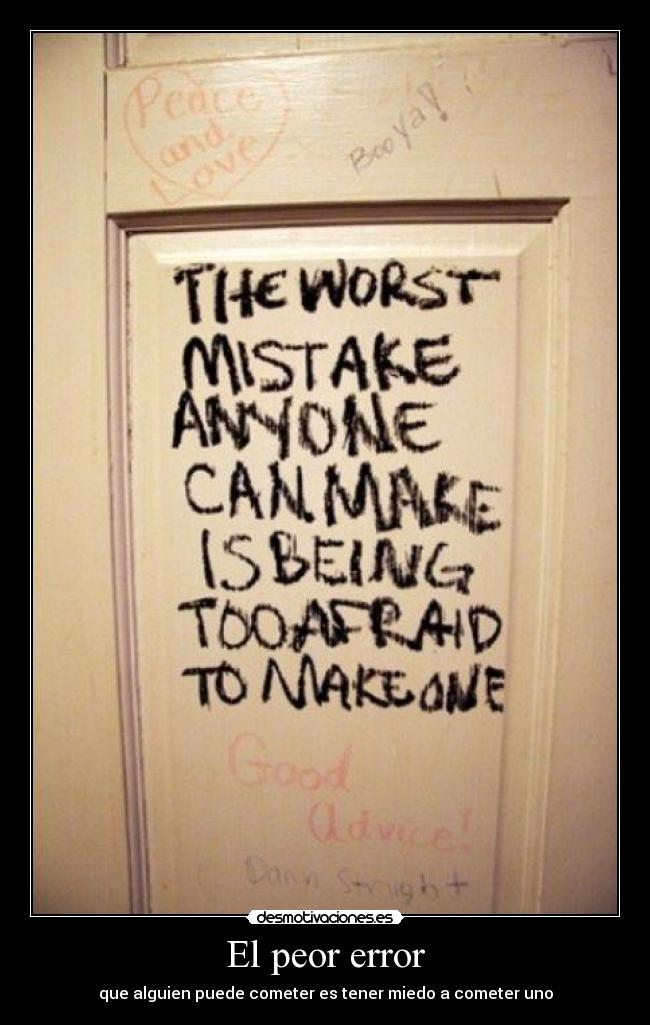 Peace
and
Love
Booya!
THE WORST
MISTAKE
ANYONE
CAN MAKE
IS BEING
TOO AFRAID
TO MAKE ONE
Good
advice!
Damn Straight
desmotivaciones.es
El peor error
que alguien puede cometer es tener miedo a cometer uno